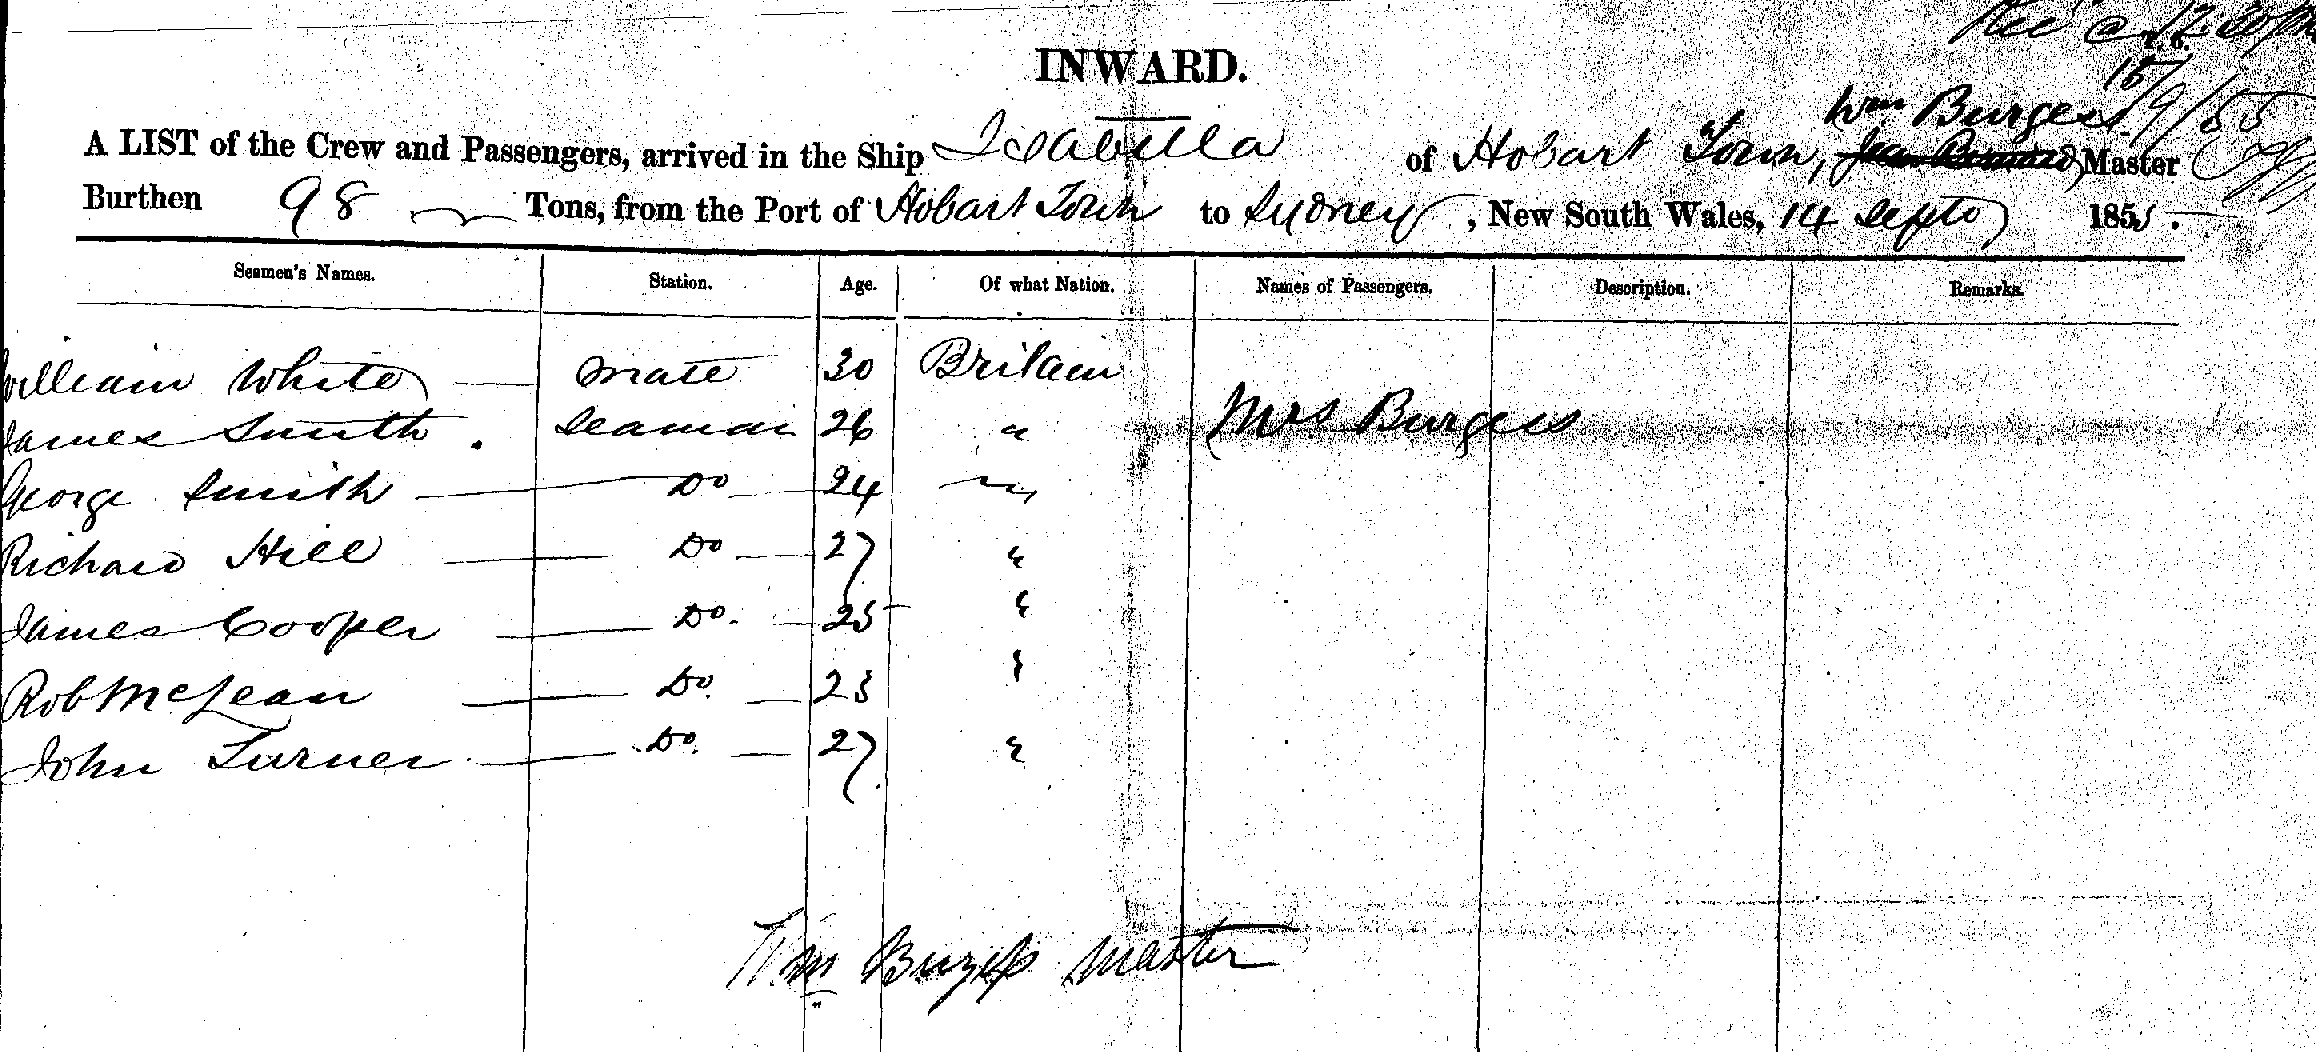 Rec'd
INWARD.
15/9/55
Wm Burgess
A LIST of the Crew and Passengers, arrived in the Ship Isabella of Hobart Town, Master
Burthen 98 Tons, from the Port of Hobart Town to Sydney, New South Wales, 14 Septo 1855.
Seamen's Names. Station. Age. Of what Nation. Names of Passengers. Description. Remarks.
William White Mate 30 Britain
James Smith. Seaman 26 " Mrs Burgess
George Smith Do 24 "
Richard Hill Do 27 "
James Cooper Do. 25 "
Rob McLean Do. 23 "
John Turner Do. 27 "
Wm Burgess Master